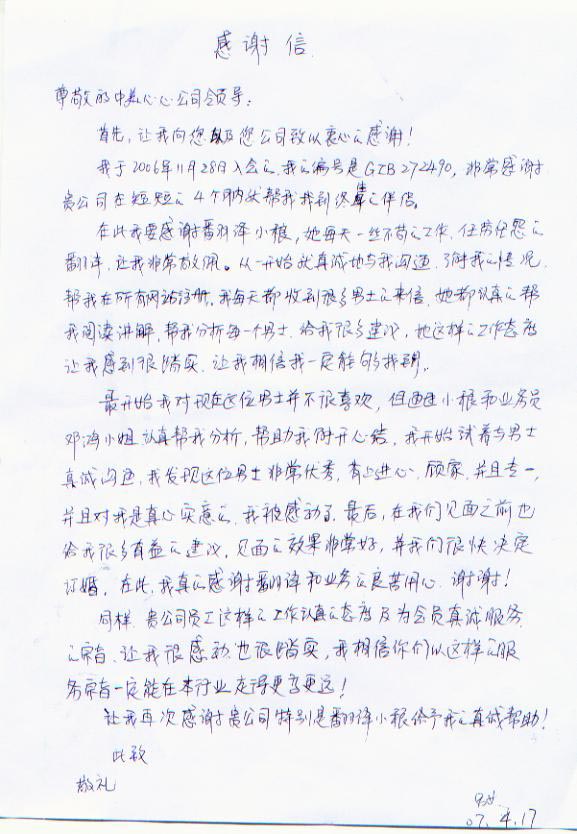 感谢信
尊敬的中美心心公司领导：
首先，让我向您以及您公司致以衷心的感谢！
我于2006年11月28日入会的，我的编号是GZB272490，非常感谢
贵公司在短短的4个月内就帮我找到终生的伴侣。
在此我要感谢翻译小根，她每天一丝不苟的工作，任劳任怨的
翻译，让我非常敬佩。从一开始就真诚地与我沟通，了解我的情况，
帮我在所有网站注册，我每天都收到很多男士的来信，她都认真的帮
我阅读讲解，帮我分析每一个男士，给我很多建议，她这样的工作态度
让我感到很踏实，让我相信我一定能够找到。
最开始我对现在这位男士并不很喜欢，但通过小根和业务员
邓海小姐认真帮我分析，帮助我解开心结，我开始试着与男士
真诚沟通，我发现这位男士非常优秀，有上进心，顾家，并且专一，
并且对我是真心实意的，我被感动了。最后，在我们见面之前也
给我很多有益的建议，见面的效果非常好，并我们很快决定
订婚，在此，我真的感谢翻译和业务的良苦用心，谢谢！
同样，贵公司员工这样的工作认真的态度及为会员真诚服务
的宗旨，让我很感动也很踏实，我相信你们以这样的服
务宗旨一定能在本行业走得更高更远！
让我再次感谢贵公司特别是翻译小根给予我的真诚帮助！
此致
敬礼
07.4.17